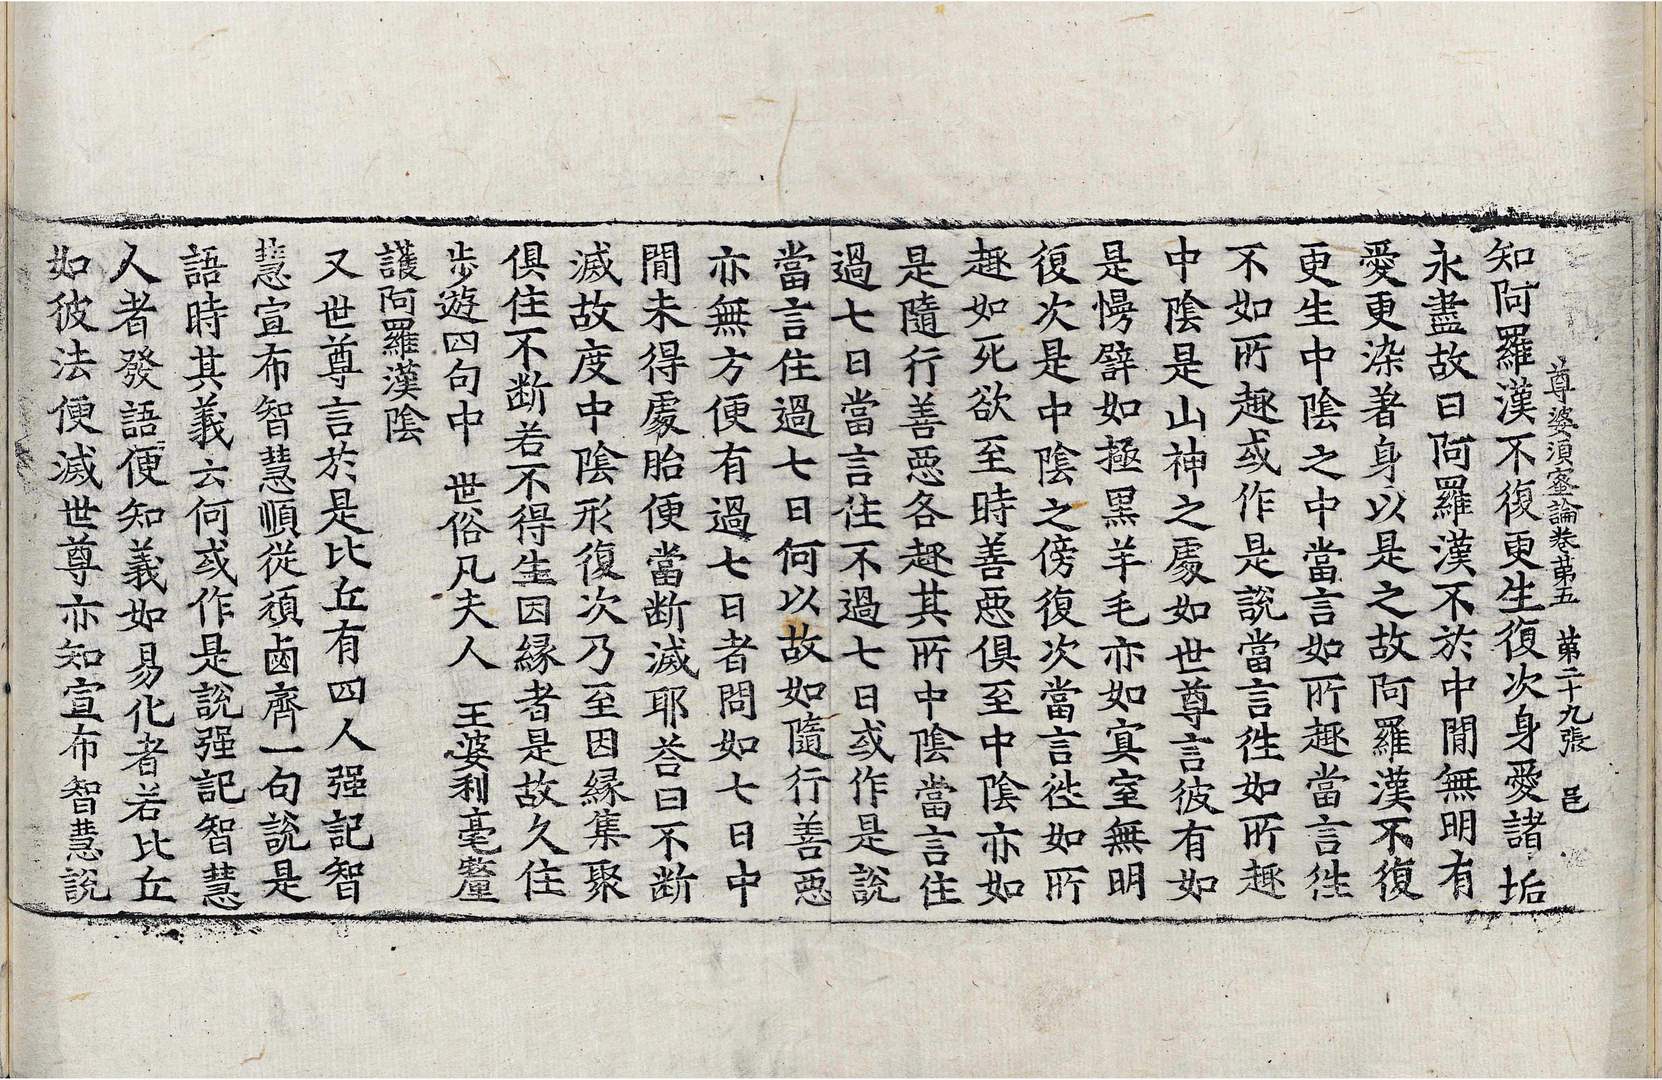 尊婆須蜜論卷第五　第二十九張　邑
知阿羅漢不復更生復次身愛諸垢
永盡故曰阿羅漢不於中閒無明有
愛更染著身以是之故阿羅漢不復
更生中陰之中當言如所趣當言徃
不如所趣或作是說當言徃如所趣
中陰是山神之處如世尊言彼有如
是慢譬如極黑羊毛亦如寘室無明
復次是中陰之傍復次當言徃如所
趣如死欲至時善惡俱至中陰亦如
是隨行善惡各趣其所中陰當言住
過七日當言住不過七日或作是說
當言住過七日何以故如隨行善惡
亦無方便有過七日者問如七日中
閒未得處胎便當断滅耶荅曰不断
滅故度中陰形復次乃至因緣集聚
俱住不断若不得生因緣者是故久住
步遊四句中　世俗凡夫人　王婆利毫釐
護阿羅漢陰
又世尊言於是比丘有四人强記智
慧宣布智慧順從頑鹵齊一句說是
語時其義云何或作是說强記智慧
人者發語便知義如易化者若比丘
如彼法便滅世尊亦知宣布智慧說